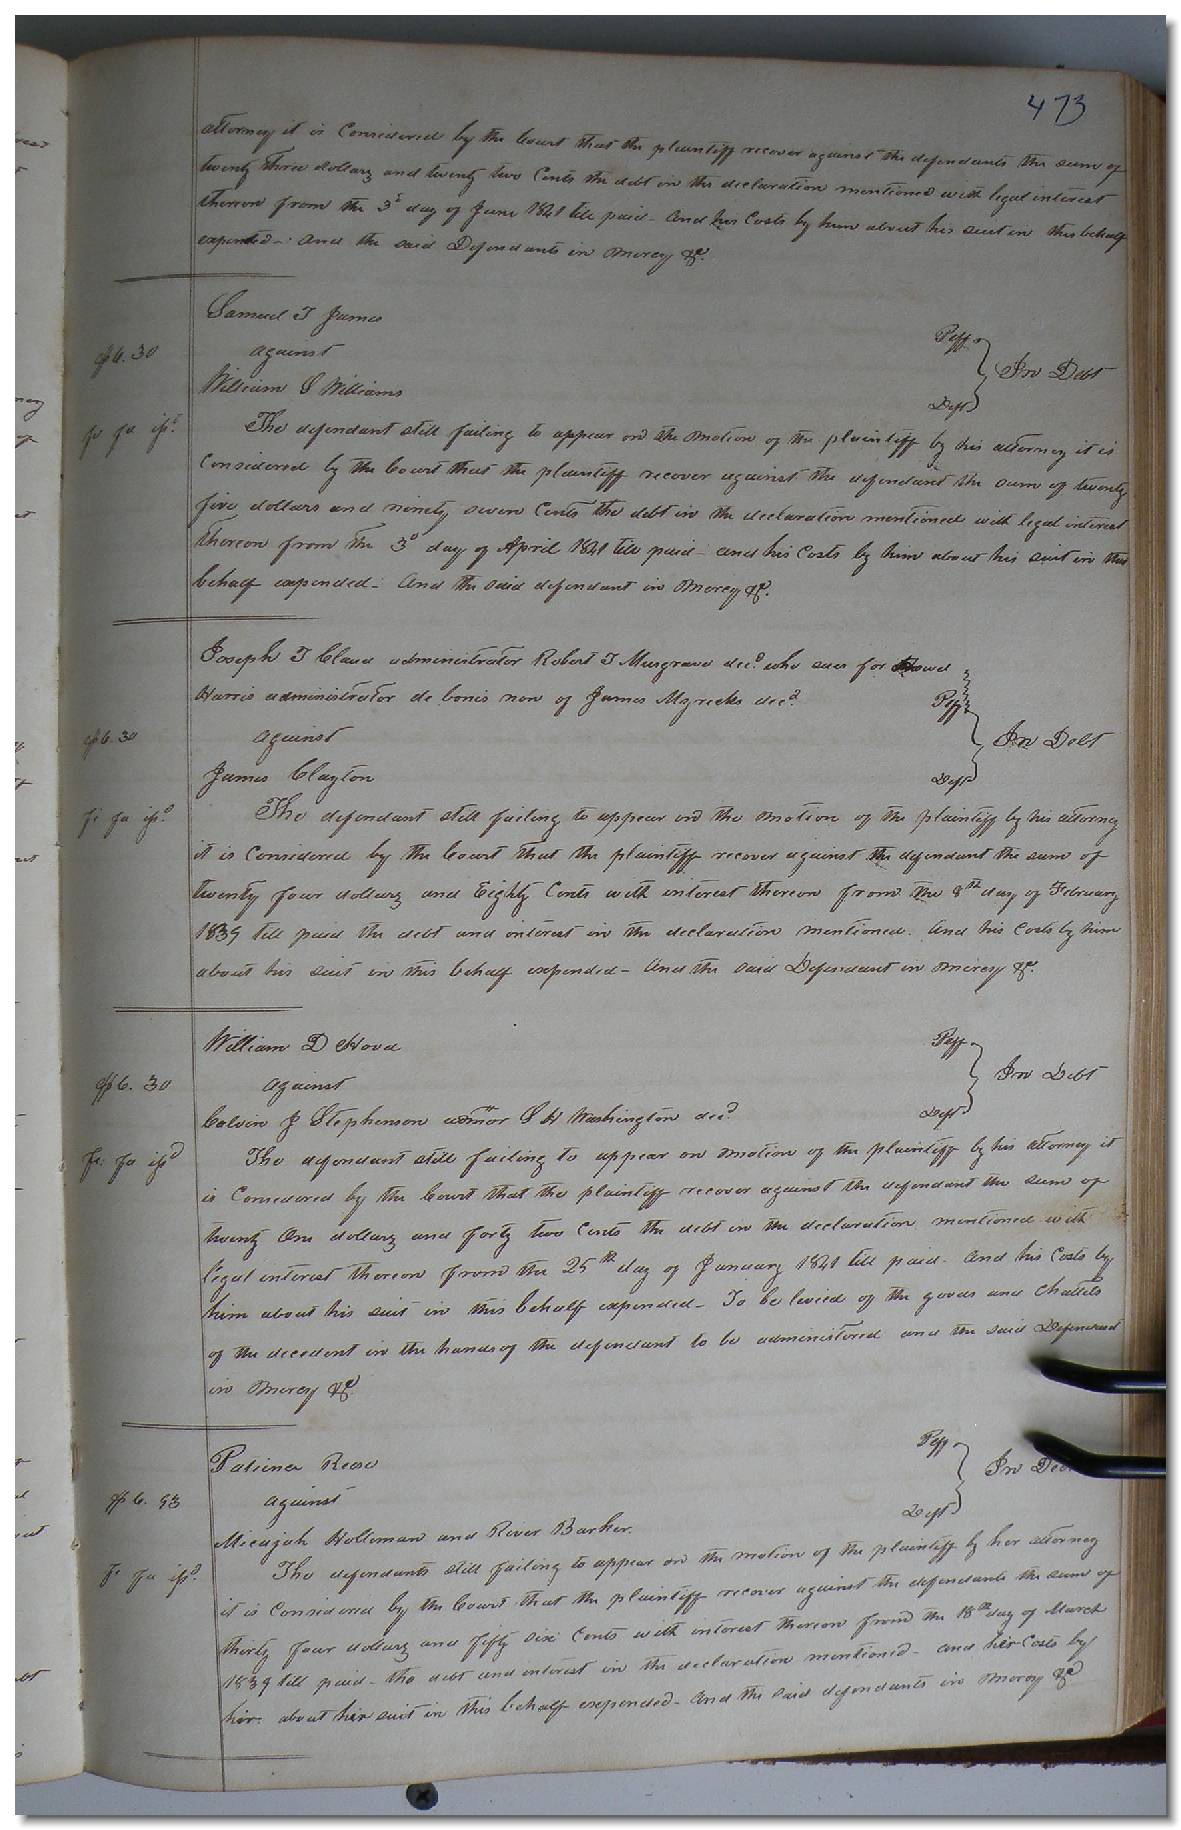 473
attorney it is Considered by the Court that the plaintiff recover against the defendants the sum of
twenty three dollars and twenty two Cents the debt in the declaration mentioned with legal interest
thereon from the 3d day of June 1841 till paid - and his Costs by him about his suit in this behalf
expended - And the said Defendants in mercy &c.
Samuel T James
Plff
$6.30
against
In Debt
William S Williams
Deft
fi fa issd
The defendant still failing to appear on the motion of the plaintiff by his attorney it is
Considered by the Court that the plaintiff recover against the defendant the sum of twenty
five dollars and ninety seven Cents the debt in the declaration mentioned with legal interest
thereon from the 3d day of April 1841 till paid - and his Costs by him about his suit in this
behalf expended - And the said defendant in mercy &c.
Joseph T Claud administrator Robert T Musgrave decd who sues for
Harris administrator de bonis non of James decd
Plff
$6.30
against
In Debt
James Clayton
Deft
fi fa issd
The defendant still failing to appear on the motion of the plaintiff by his attorney
it is Considered by the Court that the plaintiff recover against the defendant the sum of
twenty four dollars and Eighty Cents with interest thereon from the 8th day of February
1839 till paid the debt and interest in the declaration mentioned. And his Costs by him
about his suit in this behalf expended - And the said Defendant in mercy &c.
William D Hood
Plff
$6.30
against
In Debt
Calvin J Stephenson admor S H Washington decd
Deft
Fi: fa issd
The defendant still failing to appear on motion of the plaintiff by his attorney it
is Considered by the Court that the plaintiff recover against the defendant the sum of
twenty One dollars and forty two Cents the debt in the declaration mentioned with
legal interest thereon from the 25th day of January 1841 till paid - And his Costs by
him about his suit in this behalf expended - To be levied of the goods and Chattels
of the decedent in the hands of the defendant to be administered and the said Defendant
in mercy &c.
Patience Rese
Plff
$6.93
against
In Debt
Micajah Holleman and River Barker.
Deft
fi fa issd.
The defendants still failing to appear on the motion of the plaintiff by her attorney
it is Considered by the Court that the plaintiff recover against the defendants the sum of
thirty four dollars and fifty six Cents with interest thereon from the 18th day of March
1839 till paid - the debt and interest in the declaration mentioned - and her Costs by
her about her suit in this behalf expended - And the said defendants in mercy &c